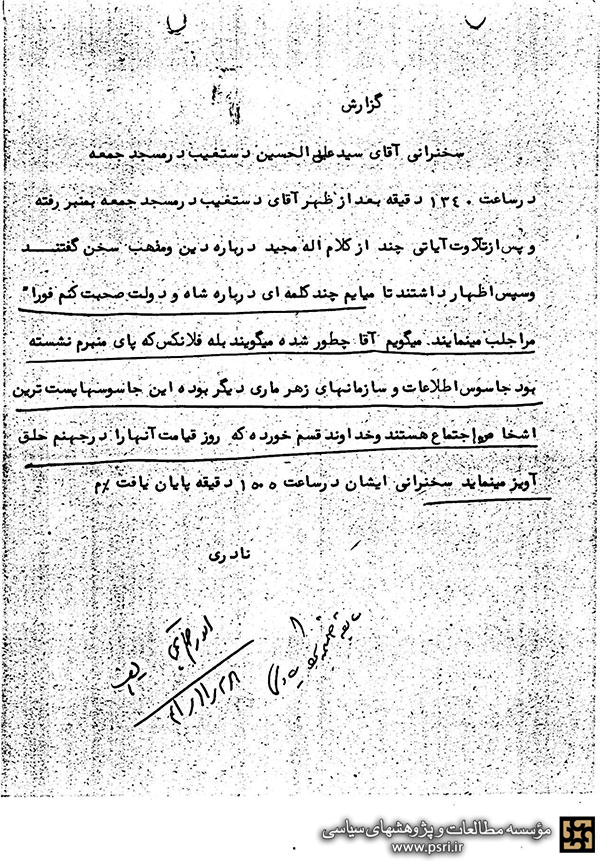 گزارش
سخنرانی آقای سید علی الحسین دستغیب در مسجد جمعه
در ساعت ۱۳۴۰ دقیقه بعد از ظهر آقای دستغیب در مسجد جمعه بمنبر رفته
و پس از تلاوت آیاتی چند از کلام اله مجید درباره دین و مذهب سخن گفتند
و سپس اظهار داشتند تا میایم چند کلمه ای درباره شاه و دولت صحبت کنم فورا"
مرا جلب مینمایند. میگویم آقا چطور شده میگویند بله فلانکس که پای منبرم نشسته
بود جاسوس اطلاعات و سازمانهای زهر ماری دیگر بوده این جاسوسها پست ترین
اشخاص اجتماع هستند و خداوند قسم خورده که روز قیامت آنها را در جهنم حلق
آویز مینماید سخنرانی ایشان در ساعت ۱۵۰۰ دقیقه پایان یافت ٪م
نادری
مؤسسه مطالعات و پژوهشهای سیاسی
www.psri.ir